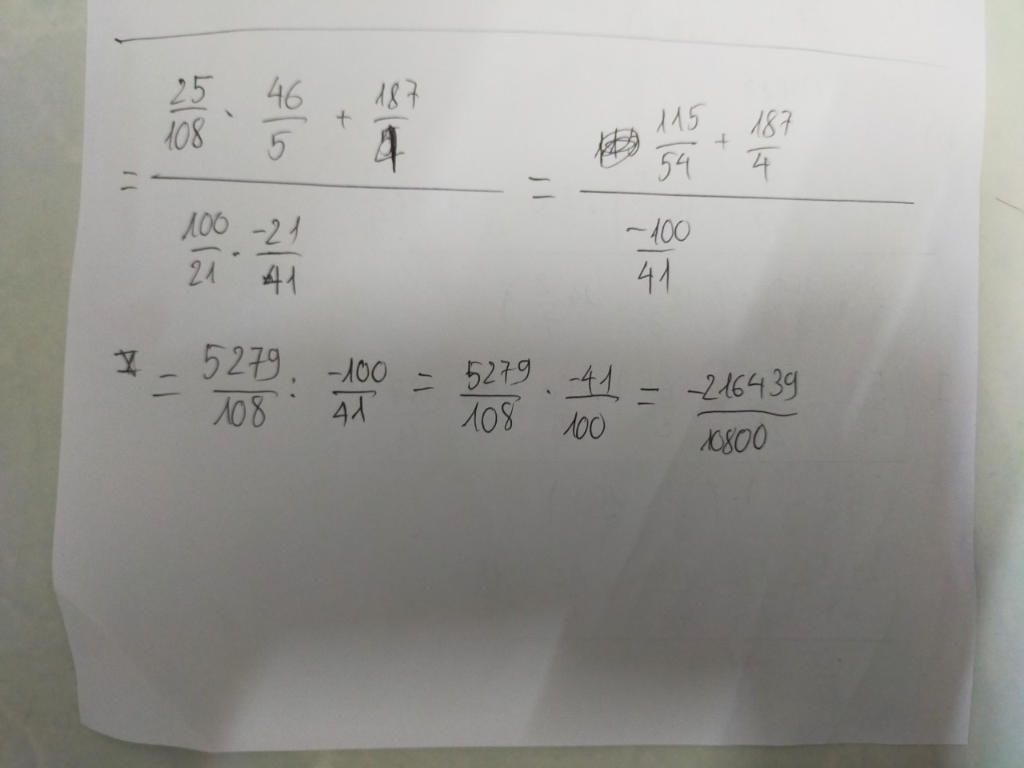 = (25/108 · 46/5 + 187/4) / (100/21 · -21/41) = (115/54 + 187/4) / (-100/41)
= 5279/108 : -100/41 = 5279/108 · -41/100 = -216439/10800